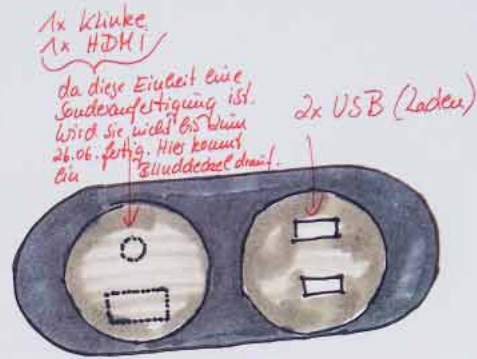 1x Klinke
1x HDMI
da diese Einheit eine
Sonderanfertigung ist.
Wird sie nicht bis zum
26.06. fertig. Hier kommt
ein Blinddeckel drauf.
2x USB (Laden)